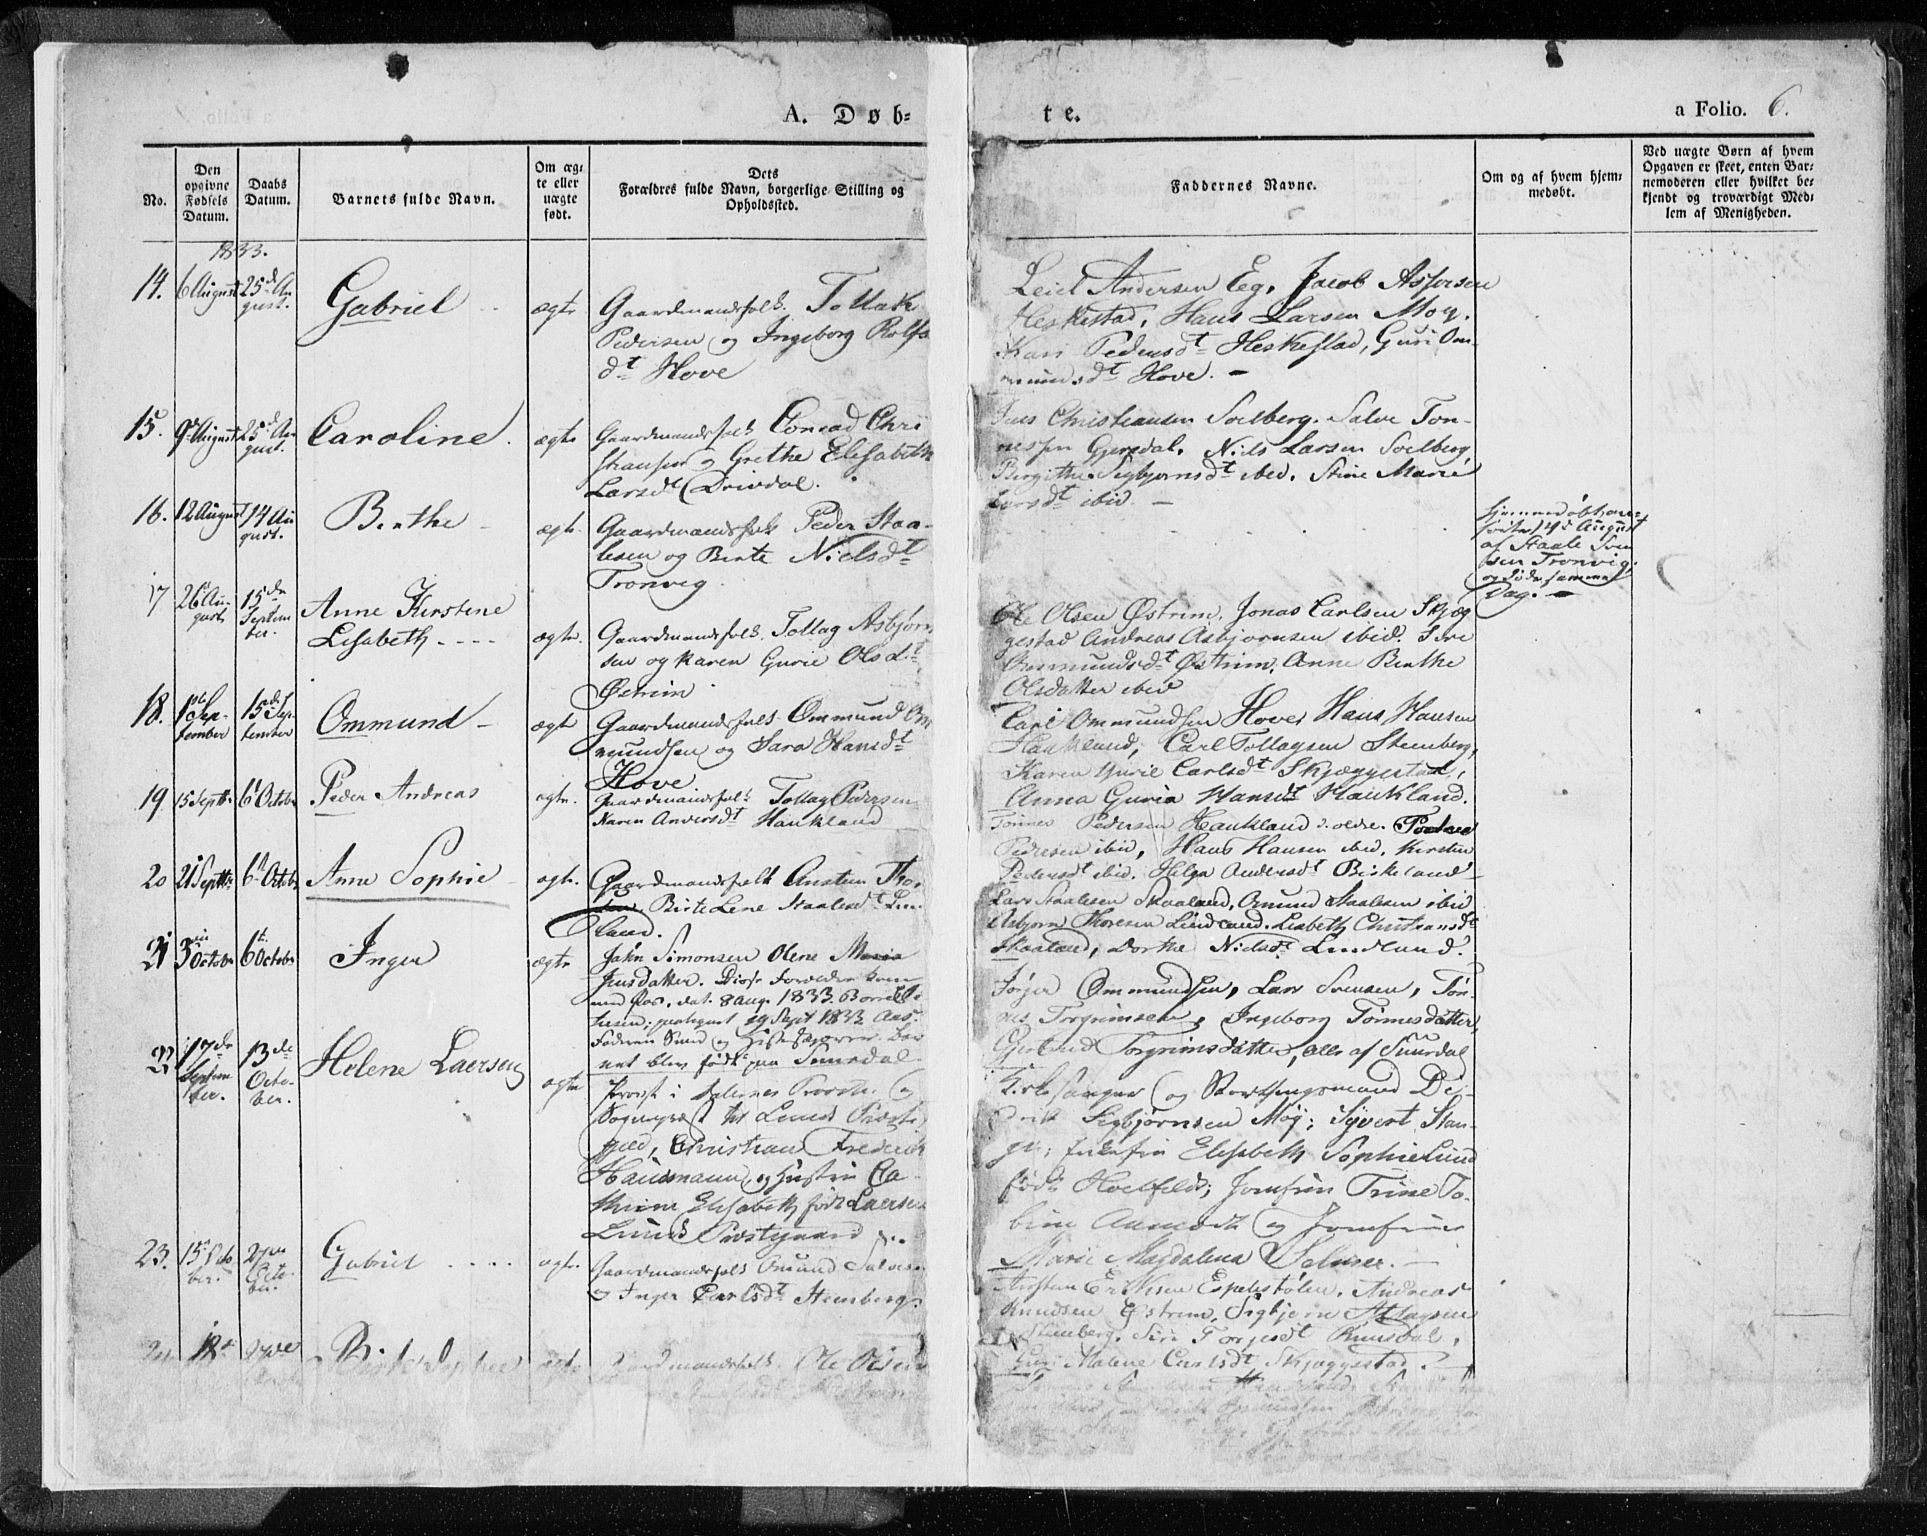 A. Døb-
te.
a Folio. 6.
No.
Den opgivne Fødsels Datum.
Daabs Datum.
Barnets fulde Navn.
Om ægte eller uægte født.
Dets
Forældres fulde Navn, borgerlige Stilling og
Opholdssted.
Faddernes Navne.
Om og af hvem hjem-
medøbt.
Ved uægte Børn af hvem
Opgaven er skeet, enten Bar-
nemoderen eller hvilket be-
kjendt og troværdigt Med-
lem af Menigheden.
1833.
14.
6 August
25de Au
gust.
Gabriel
ægte
Gaardmandsfolk Tollak
Pedersen og Ingeborg Rolfs
dt Hove
Andersen Eeg, Jacob Asforsen
Heskestad, Hans Larsen Moy.
Kari Pedersdt Heskestad, Guri Om-
mundsdt Hove. -
15.
9de August
25de Au
gust.
Caroline.
ægte
Gaardmandsfolk Conrad Chri
stiansen og Grethe Elisabeth
Larsdt Drivdal.
Jens Christiansen Soelberg. Salve Ton-
nessen Gjersdal. Niels Larsen Soelberg,
Birgithe Sigbjørnsdt ibid. Stine Marie
Larsdt ibid -
16.
12 August
14 Au
gust.
Berthe -
ægte.
Gaardmandsfolk Peder Staa-
lesen og Birte Nielsdt
Tronvig.
Hjemmedøbt
August
af Staale Sven
sen Tronvig,
og døde samme
Dag. -
17
26 Au-
gust
15de
Septem
ber.
Anne Kirstine
Lisabeth ----
ægte.
Gaardmandsfolk. Tollag Asbjørn
sen og Karen Gurie Olsdt
Østrim
Ole Olsen Østrim, Jonas Carlsen Skjæg
gestad Andreas Asbjørnsen ibid. Siri
Ommundsdt Østrim, Anne Berthe
Olsdatter ibid
18.
1ste Sep-
tember
15de Sep
tember
Ommund -
ægte
Gaardmandsfolk Ommund Om
mundsen og Sara Hansdt
Hove
Carl Ommundsen Hove, Hans Hansen
Haukland, Carl Tollagsen Steenberg,
Karen Gurie Carlsdt Skjæggestad,
Anna Guria Hansdt Haukland.
19
15 Septbr
6 Octobr
Peder Andreas
ægte.
Gaardmandsfolk Tollag Pedersen
Karen Andersdt Haukland
Tønnes Pedersen Haukland
Pedersen ibid, Hans Hansen ibid, Kirsten
Pedersdt ibid. Helga Andersdt Birkeland
20
21 Septbr
6te Octobr
Anne Sophie
ægte.
Gaardmandsfolk Austen Tho-
Birte Lene Staalesdt Lin
land.
Lars Staalesen Skaaland, Omund Staalesen ibid
Asbjørn Thoresen Lindland. Lisabeth Christiansdt
Skaaland, Dorthe Nielsdt Lindland.
21
3 Octobr
6te Octobr
Inger
ægte
Jahn Simonsen Olene Maria
Jensdatter. Disse Forældre kom
med Pas. dat. 8 Aug. 1833
29 Sept 1833
Faderen Smed og Huset Barn
net blev født paa Suurdal.
Ommundsen, Lars Svensen, Tøn-
nes Torgrimsen, Ingeborg Tønnesdatter,
Gjertrud Torgrimsdatter, alle af Suurdal
22
17de
Septem
ber.
13de
Octo-
ber.
Helene Laersen
ægte
Provst i Dalernes Provstie og
Sogneprest til Lunds Præste
gjeld, Christian Frederik
Hausmann og Hustru Ca-
thrine Elisabeth født Laersen
Lunds Præstegaard
Kirkesanger og Storthingsmand Di-
drik Sigbjørnsen Møy; Syvert Stan-
ge; Enkefru Elisabeth Sophie Lund
født Hoelfeldt; Jomfru Trine To-
bine og Jomfrue
Marie Magdalena
23.
15 Octo
ber.
27de
Octo-
ber.
Gabriel ....
ægte.
Gaardmandsfolk Omund Salvesen
og Inger Carlsdt Steenberg.
Espelstølen, Andreas
Knudsen Østrim, Sigbjørn Atlagsen
Steenberg. Siri Torjesdt
Guri Malene Carlsdt Skjæggestad
18de
27de
Sophie
ægte
Gaardmandsfolk Ole Olsen